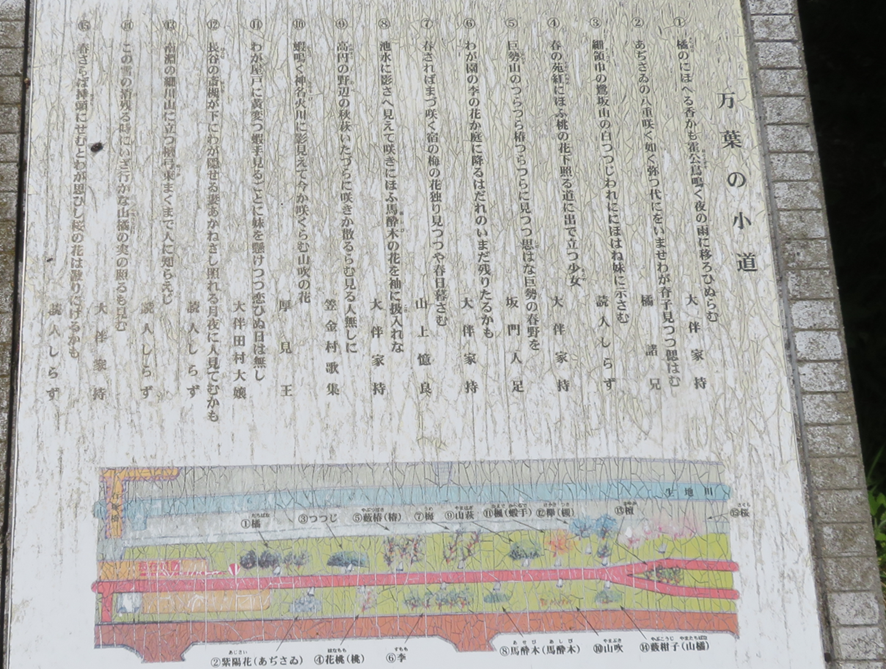 万葉の小道
① 橘のにほへる香かも霍公鳥鳴く夜の雨に移ろひぬらむ
大伴家持
② あぢさゐの八重咲く如く弥つ代にをいませわが背子見つつ偲はむ
橘諸兄
③ 細領巾の鷺坂山の白つつじわれににほはね妹に示さむ
読人しらず
④ 春の苑紅にほふ桃の花下照る道に出で立つ少女
大伴家持
⑤ 巨勢山のつらつら椿つらつらに見つつ思はな巨勢の春野を
坂門人足
⑥ わが園の李の花か庭に降るはだれのいまだ残りたるかも
大伴家持
⑦ 春さればまづ咲く宿の梅の花独り見つつや春日暮さむ
山上憶良
⑧ 池水に影さへ見えて咲きにほふ馬酔木の花を袖に扱入れな
大伴家持
⑨ 高円の野辺の秋萩いたづらに咲きか散るらむ見る人無しに
笠金村歌集
⑩ 蝦鳴く神名火川に影見えて今か咲くらむ山吹の花
厚見王
⑪ わが屋戸に黄変つ蝦手見るごとに妹を懸けつつ恋ひぬ日は無し
大伴田村大嬢
⑫ 長谷の斎槻が下にわが隠せる妻あかねさし照れる月夜に人見てむかも
読人しらず
⑬ 南淵の細川山に立つ檀弓束まくまで人に知らえじ
読人しらず
⑭ この雪の消残る時にいざ行かな山橘の実の照るも見む
大伴家持
⑮ 春さらば挿頭にせむとわが思ひし桜の花は散りにけるかも
読人しらず
生地川
①橘
③つつじ
⑤藪椿(椿)
⑦梅
⑨山萩
⑪楓(蝦手)
⑫欅(槻)
⑬檀
⑮桜
②紫陽花(あぢさゐ)
④花桃(桃)
⑥李
⑧馬酔木(馬酔木)
⑩山吹
⑭藪柑子(山橘)